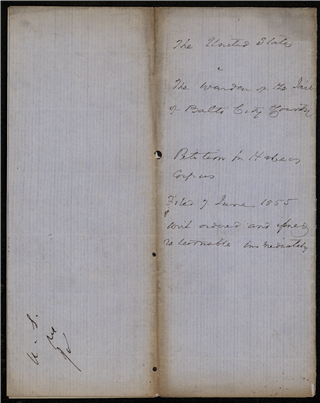 The United States
The Warden of the Jail
of Balto City County
Petition in Habeas
Corpus
Filed 7 June 1855
Writ ordered and
returnable immediately